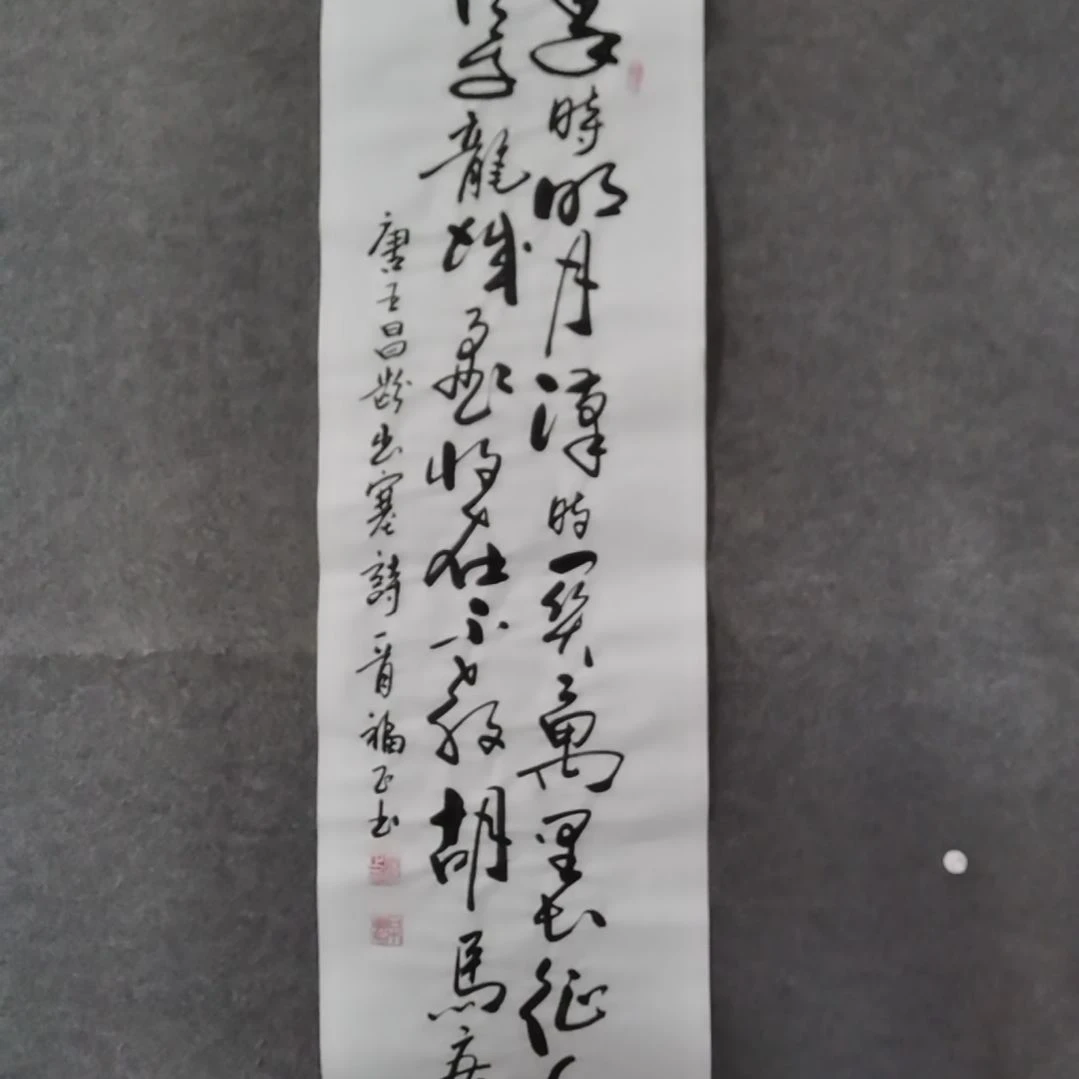 秦時明月漢時關萬里長征人
使龍城飛將在不教胡馬度
唐王昌龄出塞詩一首福正书